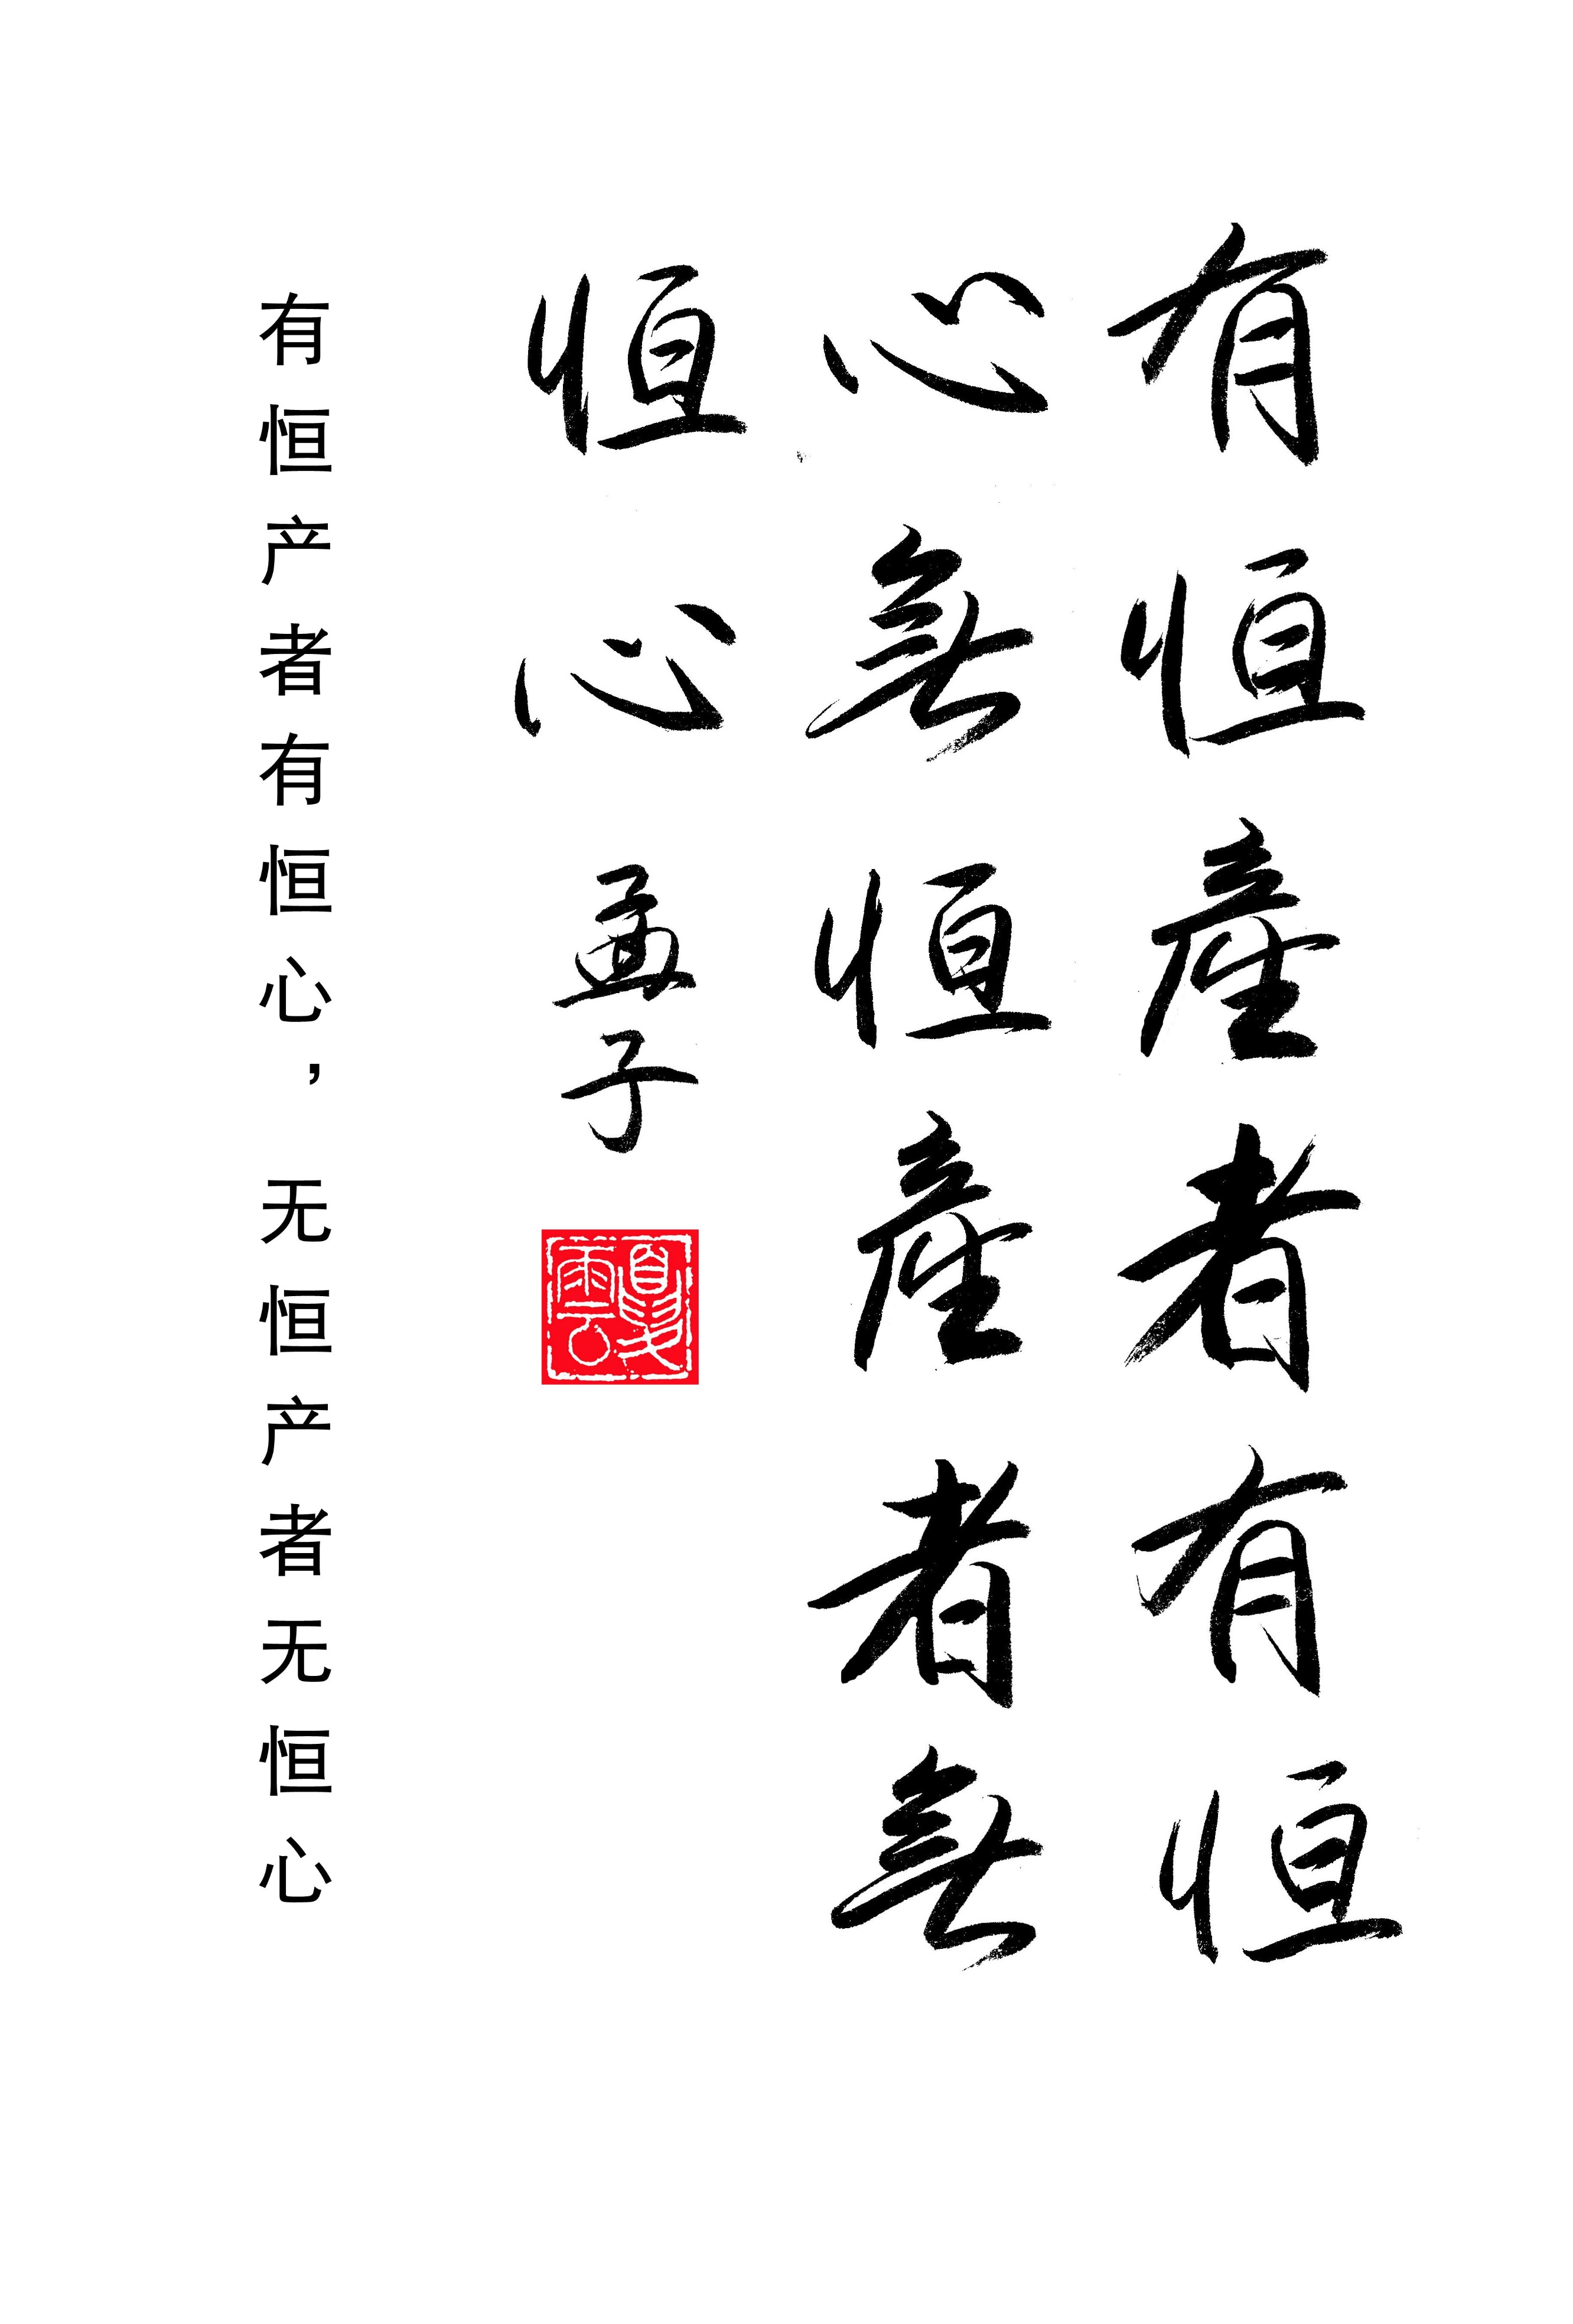 有恒產者有恒
心無恒產者無
恒心 孟子
夏雲
有恒产者有恒心，无恒产者无恒心